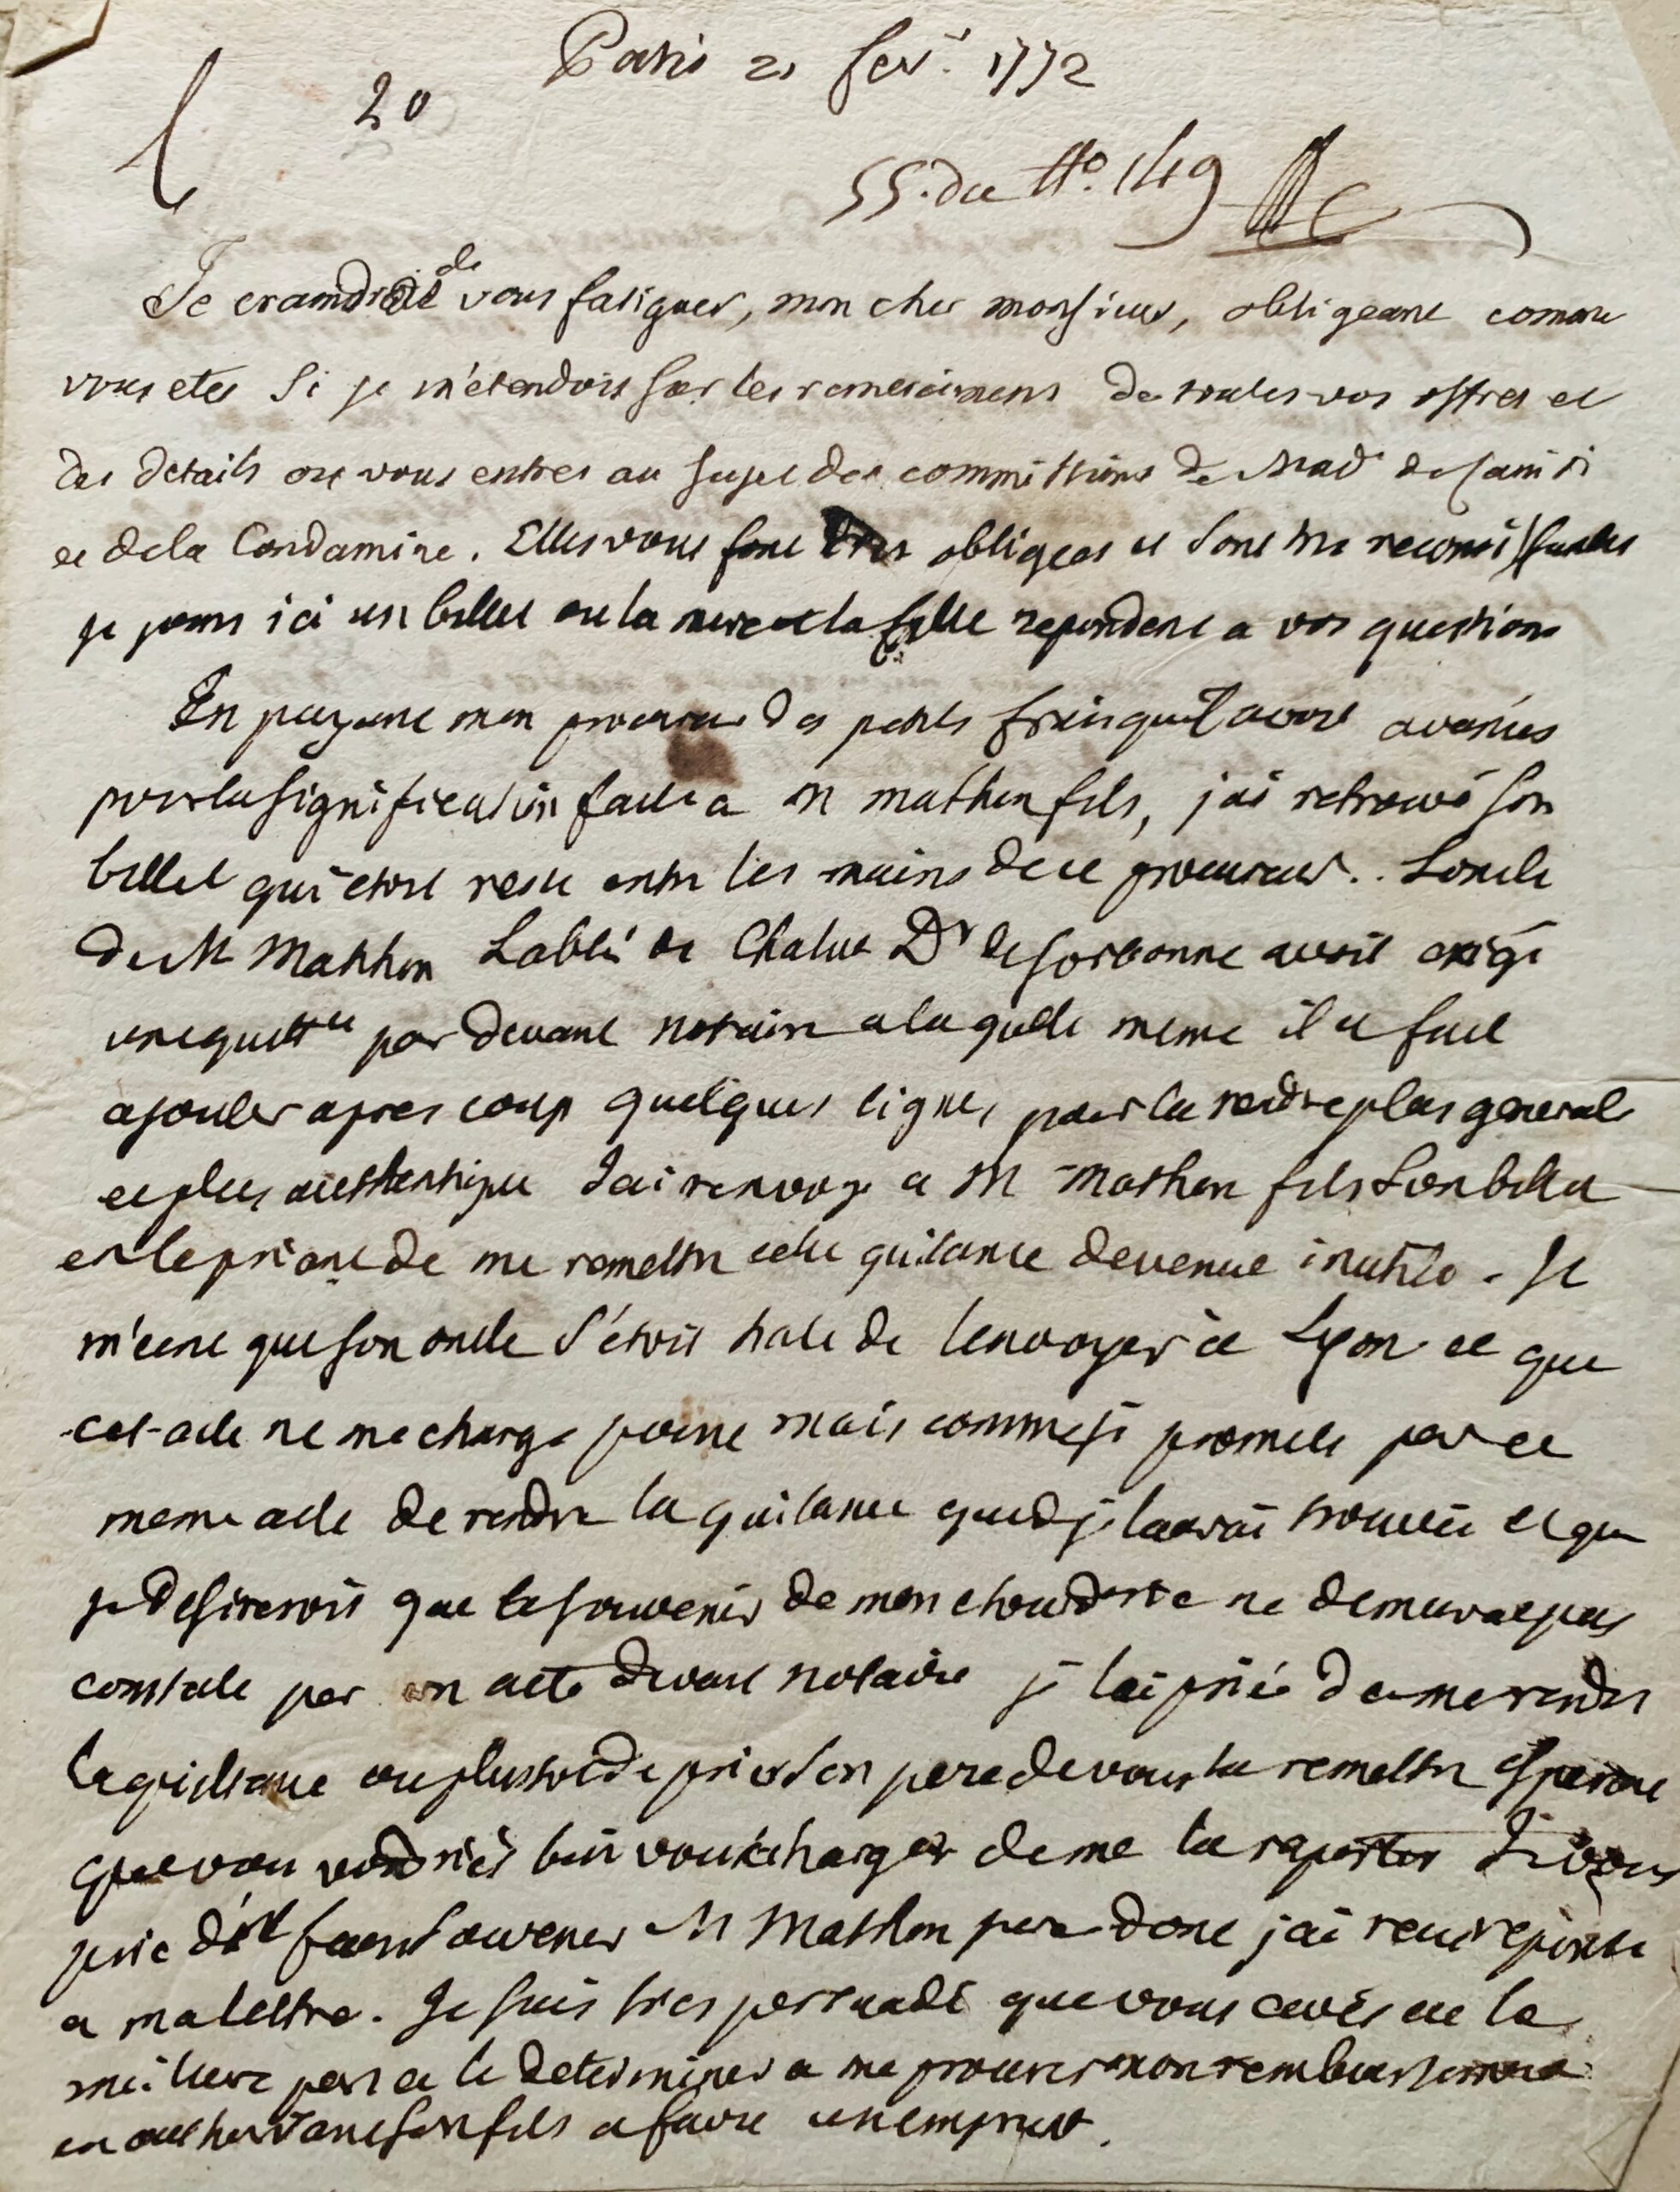 Paris 21 fev.r 1772
20
55. du tt.o 149
Je craindrois de vous fatiguer, mon cher monsieur, obligeant comme
vous etes si je m'etendois sur les remercimens de toutes vos offres et
des details ou vous entres au sujet des commissions de Mad de
et de la Condamine. Elles vous sont tres obligees et sont tres reconoissantes
je joins ici un billet ou la mere et la fille repondent a vos questions
En payant mon procureur des petits frais qu'il avoit avancés
pour la signification faite a M mathon fils, j'ai retrouvé son
billet qui etoit resté entre les mains de ce procureur.. Loncle
de M Mathon Labbé de Chalut Dr de sorbonne avoit exigé
une quittce par devant notaire a laquelle meme il a fait
ajouter apres coup quelques lignes pour la rendre plus generale
et plus authentique Jai renvoyé a M mathon fils son billet
en le priant de me remettre cette quitance devenue inutile. Il
m'ecrit que son oncle s'etoit haté de lenvoyer a Lyon et que
cet acte ne me charge point mais comme je promets par ce
meme acte de rendre la quitance quand je laurai trouvée et que
je desirerois que le souvenir de mon etourderie ne demeurat pas
constaté par un acte devant notaire je lai prié de me rendre
la quittance ou plustot de prier son pere de vous la remettre esperant
que vous voudriés bien vous charger de me la raporter Je vous
prie d'en faire souvenir M Mathon pere dont j'ai recu reponse
a ma lettre. Je suis tres persuadé que vous avés eu la
meilleure part a le determiner a me procurer mon remboursement
en authorisant son fils a faire un emprunt.